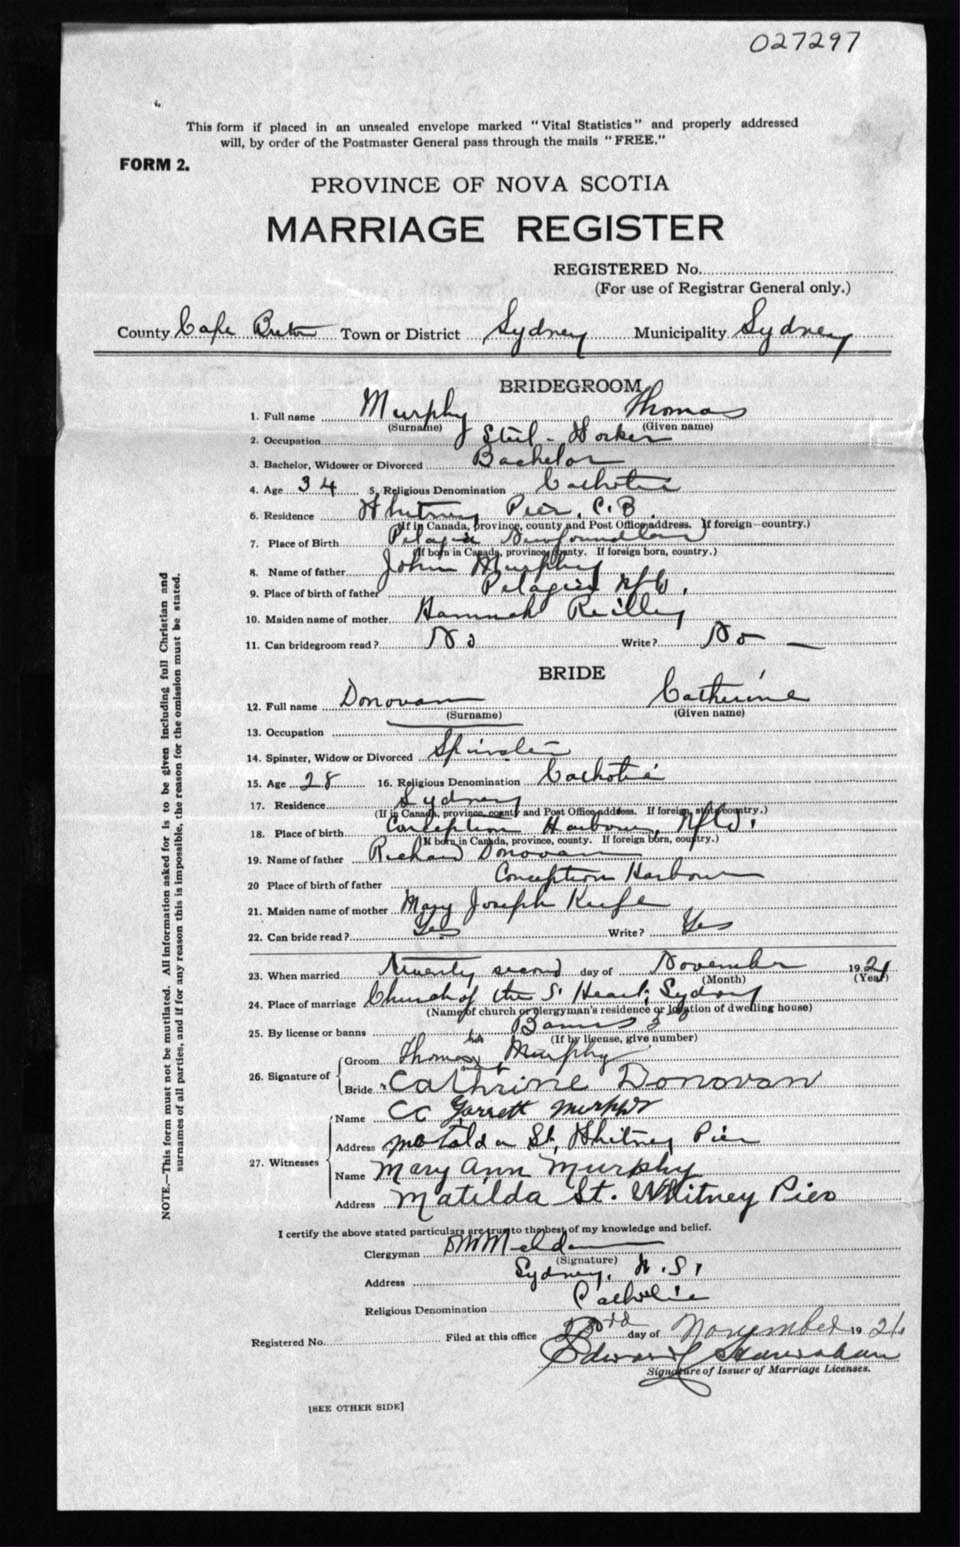 027297
This form if placed in an unsealed envelope marked "Vital Statistics" and properly addressed
will, by order of the Postmaster General pass through the mails "FREE."
FORM 2.
PROVINCE OF NOVA SCOTIA
MARRIAGE REGISTER
REGISTERED No.
(For use of Registrar General only.)
County Cape Breton Town or District Sydney Municipality Sydney
BRIDEGROOM
1. Full name Murphy Thomas
(Surname) (Given name)
2. Occupation Steel-Worker
3. Bachelor, Widower or Divorced Bachelor
4. Age 34 5. Religious Denomination Catholic
6. Residence Whitney Pier, C.B.
(If in Canada, province, county and Post Office address. If foreign—country.)
7. Place of Birth Newfoundland
(If born in Canada, province, county. If foreign born, country.)
8. Name of father John Murphy
9. Place of birth of father Nfld.
10. Maiden name of mother Hannah Reilly
11. Can bridegroom read? No Write? No —
BRIDE
12. Full name Donovan Catherine
(Surname) (Given name)
13. Occupation
14. Spinster, Widow or Divorced Spinster
15. Age 28 16. Religious Denomination Catholic
17. Residence Sydney
(If in Canada, province, county and Post Office address. If foreign, state country.)
18. Place of birth Conception Harbour, Nfld.
(If born in Canada, province, county. If foreign born, country.)
19. Name of father Richard Donovan
20 Place of birth of father Conception Harbour
21. Maiden name of mother Mary Joseph Keefe
22. Can bride read? Yes Write? Yes
23. When married Twenty second day of November 1921
(Month) (Year)
24. Place of marriage Church of the S. Heart, Sydney
(Name of church or clergyman's residence or location of dwelling house)
25. By license or banns Banns 3
(If by license, give number)
26. Signature of
Groom Thomas his Murphy
mark
Bride Cathrine Donovan
27. Witnesses
Name Garrett Murphy
Address Matilda St, Whitney Pier
Name Mary Ann Murphy
Address Matilda St. Whitney Pier
I certify the above stated particulars are true to the best of my knowledge and belief.
Clergyman
(Signature)
Address Sydney, N.S.
Religious Denomination Catholic
Registered No. Filed at this office 23rd day of November 1921
Edward
Signature of Issuer of Marriage Licenses.
[SEE OTHER SIDE]
NOTE.—This form must not be mutilated. All information asked for is to be given including full Christian and
surnames of all parties, and if for any reason this is impossible, the reason for the omission must be stated.